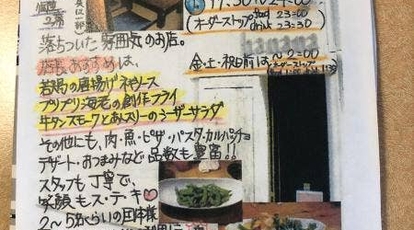 個室
2席
落ちついた雰囲気のお店。
店長おすすめは、
若鶏の唐揚げ ネギソース
プリプリ海老の創作フライ
牛タンスモークとあスリーのシーザーサラダ
その他にも、肉・魚・ピザ・パスタ・カルパッチョ
デザート・おつまみなど 品数も豊富!!
スタッフも丁寧で、
笑顔もス・テ・キ♡
2〜5名くらいの団体様
17:30〜24:00
(オーダーストップ food 23:00
drink 23:30)
金・土・祝日前は